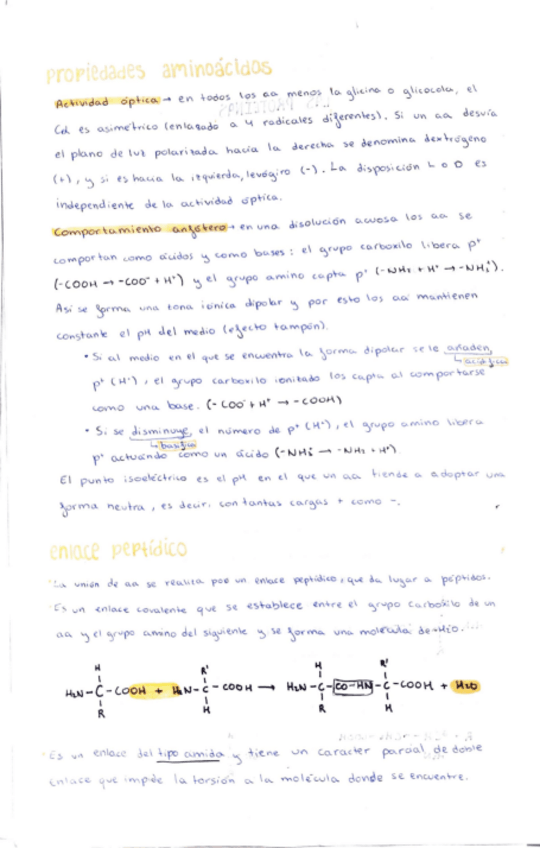 propiedades aminoácidos
Actividad óptica → en todos los aa menos la glicina o glicocola, el
Cα es asimétrico (enlazado a 4 radicales diferentes). Si un aa desvía
el plano de luz polarizada hacia la derecha se denomina dextrógeno
(+), y si es hacia la izquierda, levógiro (-). La disposición L o D es
independiente de la actividad óptica.
Comportamiento anfótero → en una disolución acuosa los aa se
comportan como ácidos y como bases: el grupo carboxilo libera p⁺
(-COOH → -COO⁻ + H⁺) y el grupo amino capta p⁺ (-NH₂ + H⁺ → -NH₃⁺).
Así se forma una zona iónica dipolar y por esto los aa mantienen
constante el pH del medio (efecto tampón).
• Si al medio en el que se encuentra la forma dipolar se le añaden
↳ acidifica
p⁺ (H⁺), el grupo carboxilo ionizado los capta al comportarse
como una base. (-COO⁻ + H⁺ → -COOH)
• Si se disminuye, el número de p⁺ (H⁺), el grupo amino libera
↳ basifica
p⁺ actuando como un ácido (-NH₃⁺ → -NH₂ + H⁺)
El punto isoeléctrico es el pH en el que un aa tiende a adoptar una
forma neutra, es decir, con tantas cargas + como -.
enlace peptídico
La unión de aa se realiza por un enlace peptídico, que da lugar a péptidos.
Es un enlace covalente que se establece entre el grupo carboxilo de un
aa y el grupo amino del siguiente y se forma una molécula de H₂O.
H R' H R'
H₂N-C-COOH + H₂N-C-COOH → H₂N-C-CO-HN-C-COOH + H₂O
R H R H
Es un enlace del tipo amida y tiene un caracter parcial de doble
enlace que impide la torsión a la molécula donde se encuentre.